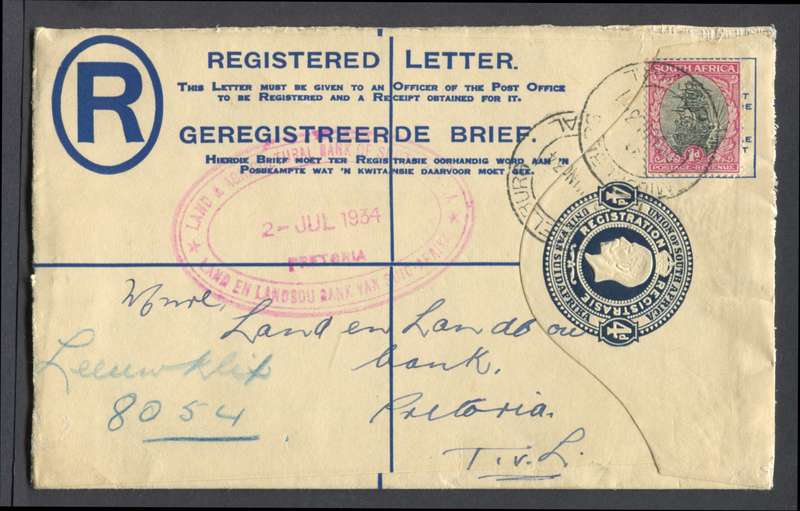 R
REGISTERED LETTER.
THIS LETTER MUST BE GIVEN TO AN OFFICER OF THE POST OFFICE
TO BE REGISTERED AND A RECEIPT OBTAINED FOR IT.
GEREGISTREERDE BRIEF.
HIERDIE BRIEF MOET TER REGISTRASIE OORHANDIG WORD AAN 'N
POSKAMPTE WAT 'N KWITANSIE DAARVOOR MOET GEE.
SOUTH AFRICA
1d
POSTAGE·REVENUE
LAND & BANK OF
2-JUL 1934
PRETORIA
LAND EN LANDBOU BANK VAN SUID AFRIKA
4d
REGISTRATION
UNION OF SOUTH AFRICA
UNIE VAN SUIDAFRIKA
REGISTRASIE
4d
Land en Landbou
bank,
Pretoria.
T.v.L.
Leeuwklip
8054